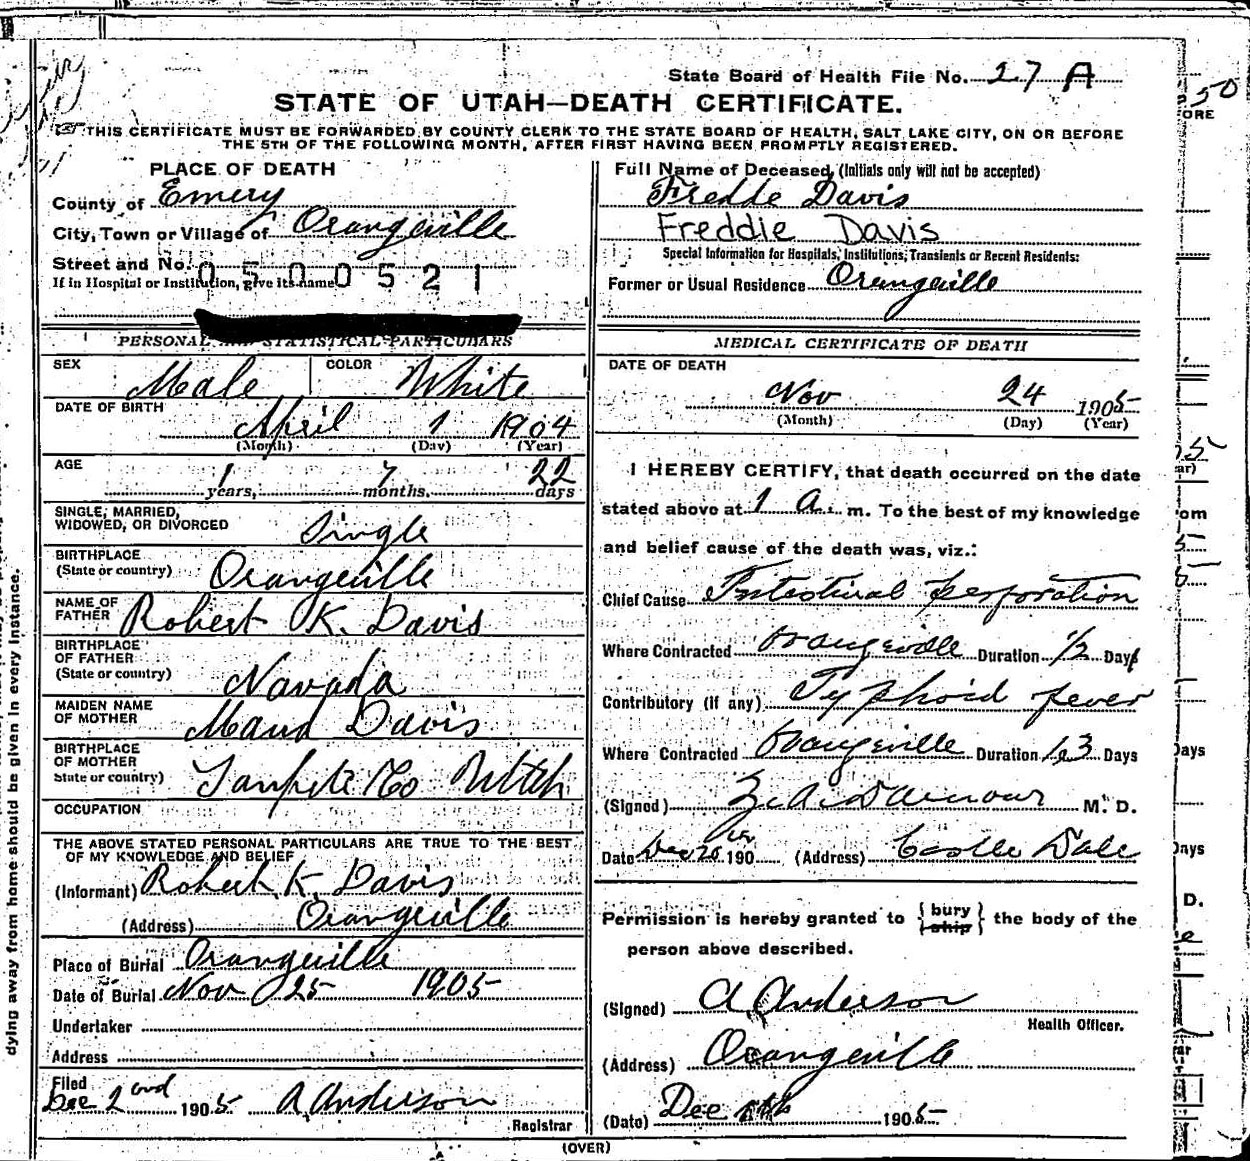 State Board of Health File No. 27 A
STATE OF UTAH—DEATH CERTIFICATE.
THIS CERTIFICATE MUST BE FORWARDED BY COUNTY CLERK TO THE STATE BOARD OF HEALTH, SALT LAKE CITY, ON OR BEFORE
THE 5TH OF THE FOLLOWING MONTH, AFTER FIRST HAVING BEEN PROMPTLY REGISTERED.
PLACE OF DEATH
County of Emery
City, Town or Village of Orangeville
Street and No.
If in Hospital or Institution, give its name
0500521
PERSONAL AND STATISTICAL PARTICULARS
SEX Male COLOR White
DATE OF BIRTH
April 1 1904
(Month) (Day) (Year)
AGE
1 years, 7 months, 22 days
SINGLE, MARRIED,
WIDOWED, OR DIVORCED Single
BIRTHPLACE
(State or country) Orangeville
NAME OF
FATHER Robert K. Davis
BIRTHPLACE
OF FATHER
(State or country) Navada
MAIDEN NAME
OF MOTHER Maud Davis
BIRTHPLACE
OF MOTHER
State or country) Sanpete Co Utah
OCCUPATION
THE ABOVE STATED PERSONAL PARTICULARS ARE TRUE TO THE BEST
OF MY KNOWLEDGE AND BELIEF
(Informant) Robert K. Davis
(Address) Orangeville
Place of Burial Orangeville
Date of Burial Nov 25 1905
Undertaker
Address
Filed
Dec 2nd 1905 A Anderson
Registrar
Full Name of Deceased, (Initials only will not be accepted)
Fredde Davis
Freddie Davis
Special Information for Hospitals, Institutions, Transients or Recent Residents:
Former or Usual Residence Orangeville
MEDICAL CERTIFICATE OF DEATH
DATE OF DEATH
Nov 24 1905
(Month) (Day) (Year)
I HEREBY CERTIFY, that death occurred on the date
stated above at 1 a. m. To the best of my knowledge
and belief cause of the death was, viz.:
Chief Cause Intestinal perforation
Where Contracted Orangeville Duration 1/2 Days
Contributory (if any) Typhoid fever
Where Contracted Orangeville Duration Days
(Signed) M. D.
Date Dec 20th 190 (Address) Castle Dale
Permission is hereby granted to { bury ship } the body of the
person above described.
(Signed) A Anderson
Health Officer.
(Address) Orangeville
(Date) Dec 1905
(OVER)
dying away from home should be given in every instance.
50
ORE
ar)
om
Days
Days
D.